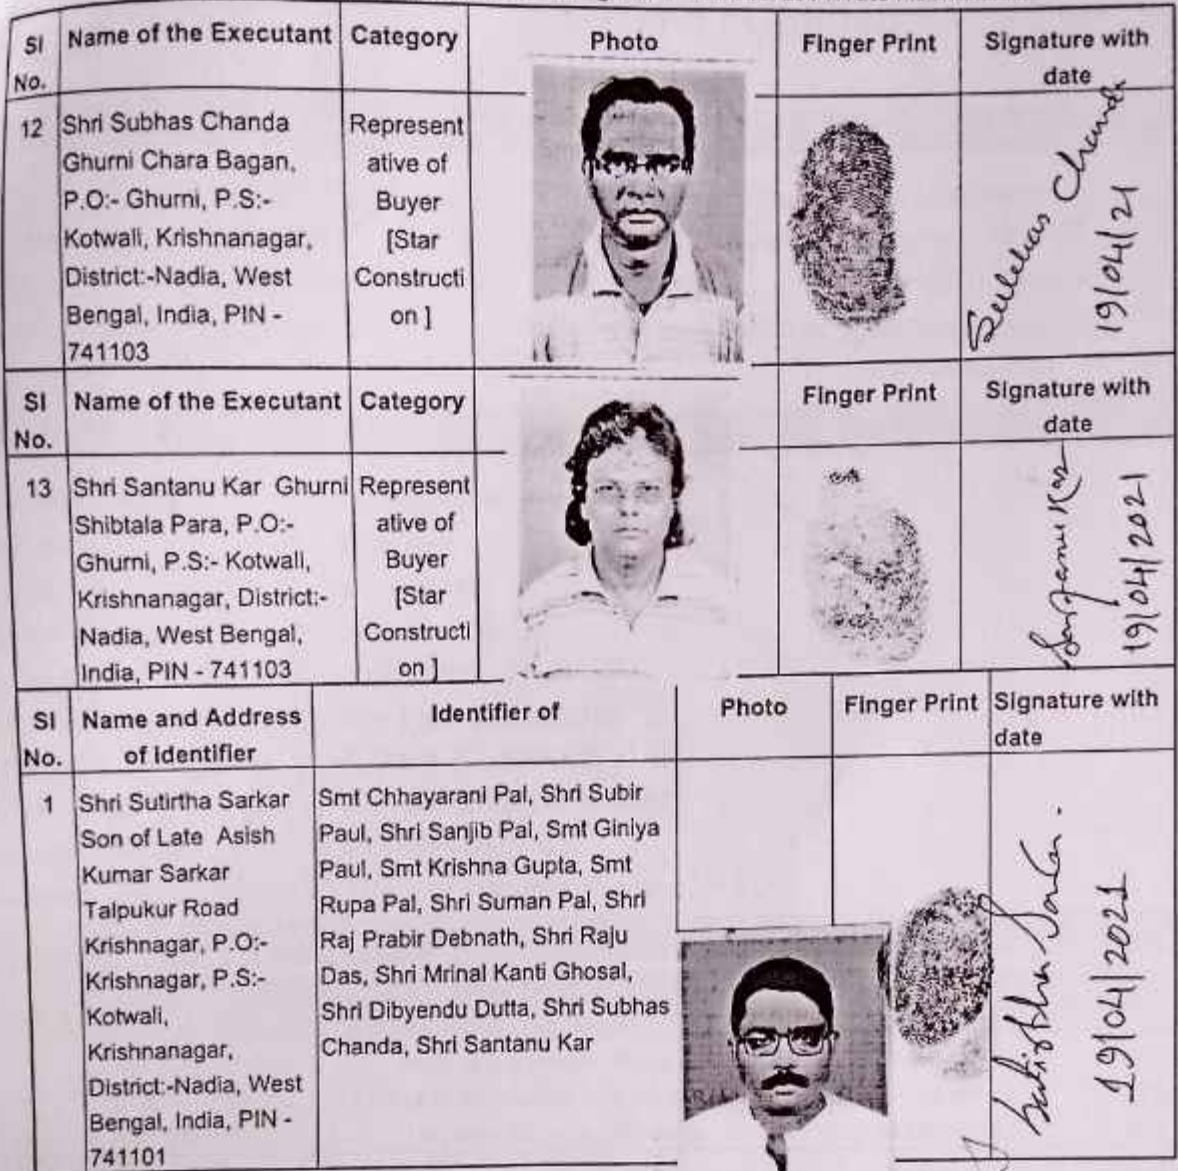 SI No. Name of the Executant Category Photo Finger Print Signature with date
12 Shri Subhas Chanda Ghurni Chara Bagan, P.O:- Ghurni, P.S:- Kotwali, Krishnanagar, District:-Nadia, West Bengal, India, PIN - 741103
Represent ative of Buyer [Star Constructi on ]
Subhas Chanda
19/04/21
SI No. Name of the Executant Category Finger Print Signature with date
13 Shri Santanu Kar Ghurni Shibtala Para, P.O:- Ghurni, P.S:- Kotwali, Krishnanagar, District:- Nadia, West Bengal, India, PIN - 741103
Represent ative of Buyer [Star Constructi on ]
Santanu Kar
19/04/2021
SI No. Name and Address of identifier Identifier of Photo Finger Print Signature with date
1 Shri Sutirtha Sarkar Son of Late Asish Kumar Sarkar Talpukur Road Krishnagar, P.O:- Krishnagar, P.S:- Kotwali, Krishnanagar, District:-Nadia, West Bengal, India, PIN - 741101
Smt Chhayarani Pal, Shri Subir Paul, Shri Sanjib Pal, Smt Giniya Paul, Smt Krishna Gupta, Smt Rupa Pal, Shri Suman Pal, Shri Raj Prabir Debnath, Shri Raju Das, Shri Mrinal Kanti Ghosal, Shri Dibyendu Dutta, Shri Subhas Chanda, Shri Santanu Kar
Sutirtha Sarkar.
19/04/2021